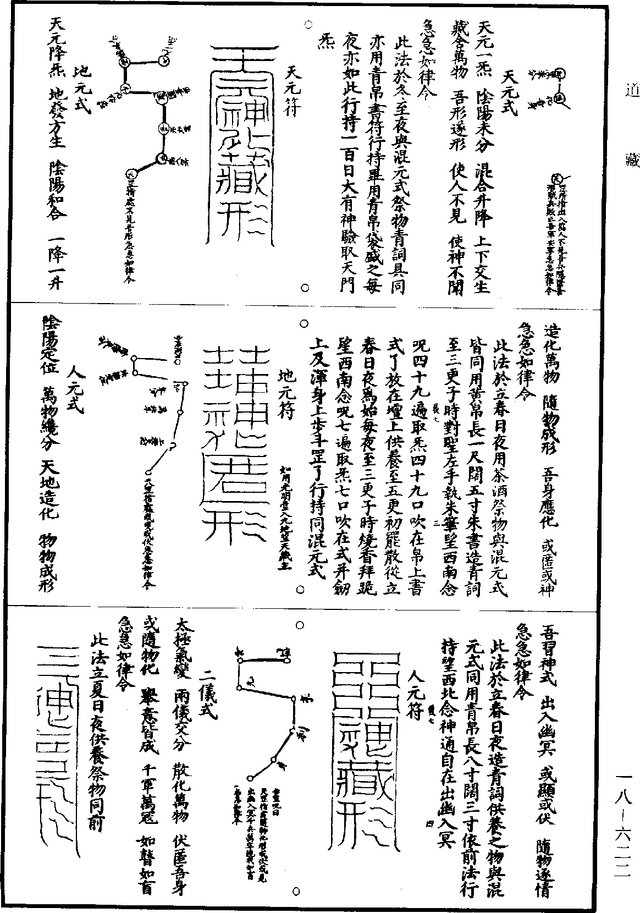 道藏
天元式
天元一炁　陰陽未分　混合升降　上下交生
藏含萬物　吾形遂形　使人不見　使神不聞
急急如律令
此法於冬至夜與混元式祭物青詞具同
亦用青帛書符行持雖用青帛袋盛之每
夜亦如此行持一百日大有神驗取天門
炁
天元符
地元式
天元降炁　地發方生　陰陽和合　一降一升
造化萬物　隨物成形　吾身應化　或匿或神
急急如律令
此法於立春日夜用茶酒祭物與混元式
皆同用黃帛長一尺闊五寸朱書造青詞
至三更子時對聖左手執朱筆望西南念
呪四十九遍取炁四十九口吹在帛上書
式了放在壇上供養至五更初罷散從立
春日夜爲始每夜至三更子時燒香拜跪
望西南念呪七遍取炁七口吹在式并劒
上及渾身上步斗罡了行持同混元式
地元符
人元式
陰陽定位　萬物纔分　天地造化　物物成形
吾習神式　出入幽冥　或顯或伏　隨物逐情
急急如律令
此法於立春日夜造青詞供養之物與混
元式同用青帛長八寸闊三寸依前法行
持望西北念神通自在出幽入冥
人元符
二儀式
太極氣變　兩儀交分　散化萬物　伏匿吾身
或隨物化　舉意皆成　千軍萬冦　如瞽如盲
急急如律令
此法立夏日夜供養祭物同前
一八－六二二